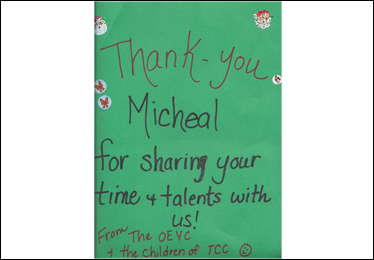 Thank-you
Micheal
for sharing your
time + talents with
us!
From The OEYC
+ the children of TCC ☺